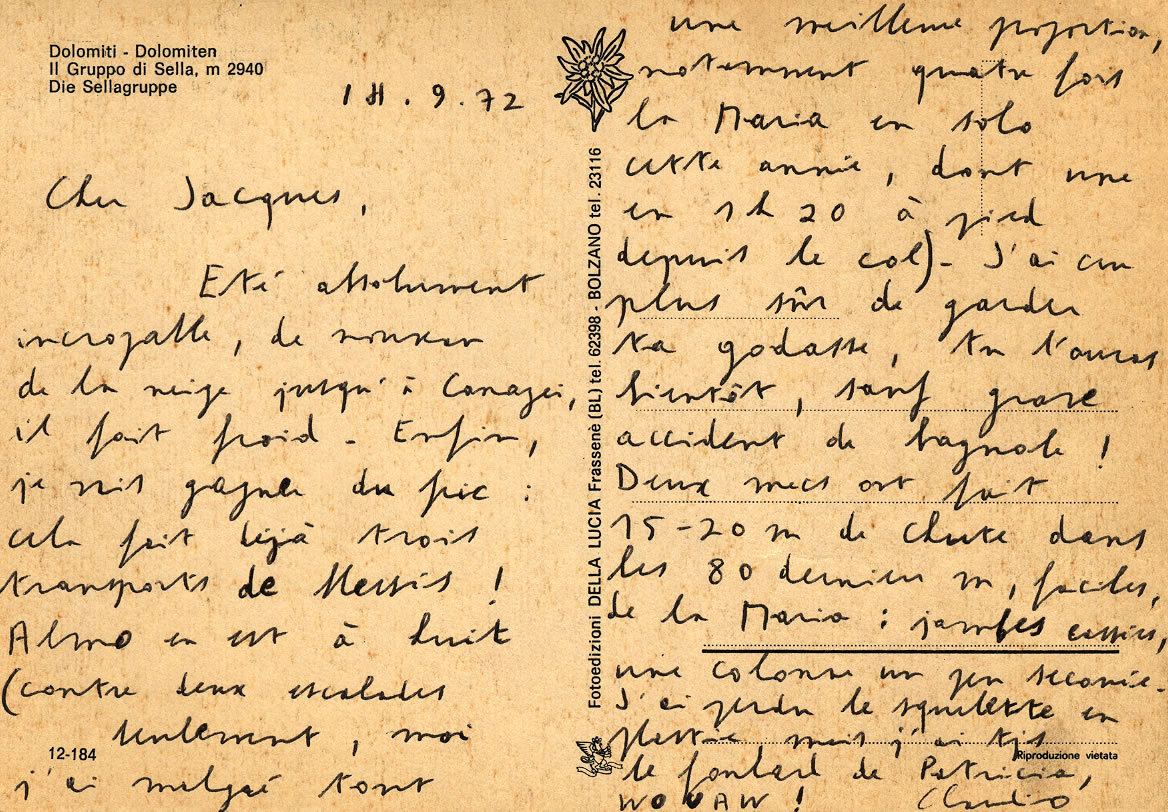 Dolomiti - Dolomiten
Il Gruppo di Sella, m 2940
Die Sellagruppe
14 . 9 . 72
Cher Jacques,
Eté absolument
incroyable, de nouveau
de la neige jusqu'à Canazei,
il fait froid - Enfin,
je du :
cela fait déjà trois
transports de blessés !
Almo en est à huit
(contre deux escalades
seulement, moi
j'ai malgré tout
12-184
Fotoedizioni DELLA LUCIA Frassenè (BL) tel. 62398 - BOLZANO tel. 23116
une meilleure proportion,
notamment quatre fois
la Maria en solo
cette année, dont une
en 1h 20 à pied
depuis le col) - J'ai cru
plus sûr de garder
ta godasse, tu l'auras
bientôt, sauf grave
accident de bagnole !
Deux mecs ont fait
15-20 m de chute dans
les 80 derniers m, faciles,
de la Maria : jambes cassées,
une colonne un peu secouée -
J'ai perdu le squelette en
plastic, mais j'ai
le foulard de Patricia,
WOUAW ! Claudio
Riproduzione vietata